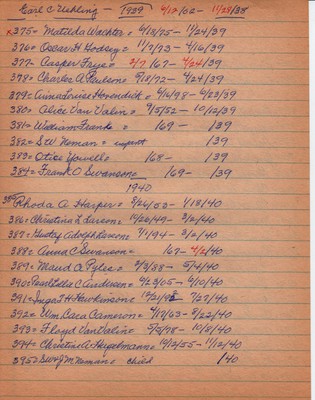 Earl C Uehling - 1939 6/17/02 - 11/28/38
x375= Matilda Wachter = 6/18/75- 1/24/39
376= Oscar H Hodsey = 11/7/93- 4/16/39
377- Casper Faye = 2/7 /67- 4/24/39
378= Charles A Paulson= 9/18/72- 4/24/39
379= Anna Louise Horendick = 6/16/98- 6/23/39
380= Alice Van Valin = 9/5/52- 10/12/39
381= William Franke = 169 - /39
382= S.W. Neman = infant /39
383= Otis Yowell= 168- /39
384= Frank O Swanson= 169- /39
1940
385= Rhoda A. Harper= 8/26/53- 1/18/40
386= Christina L Larson= 10/26/49- 3/2/40
387= Gustav Adolph Larson= 7/1/94- 3/2/40
388= Anna C Swanson= 167- 4/2/40
389= Maud A Pyles= 3/3/88- 5/4/40
390= C Andersen = 9/23/05- 6/10/40
391= H Hawkinson= 7/27/40
392= Wm Caca Cameron= 4/17/63- 8/22/40
393= Floyd Van Valin= 5/5/98- 10/5/40
394= Christine A Hugelmann= 10/12/55- 11/12/40
395= Neman= child /40